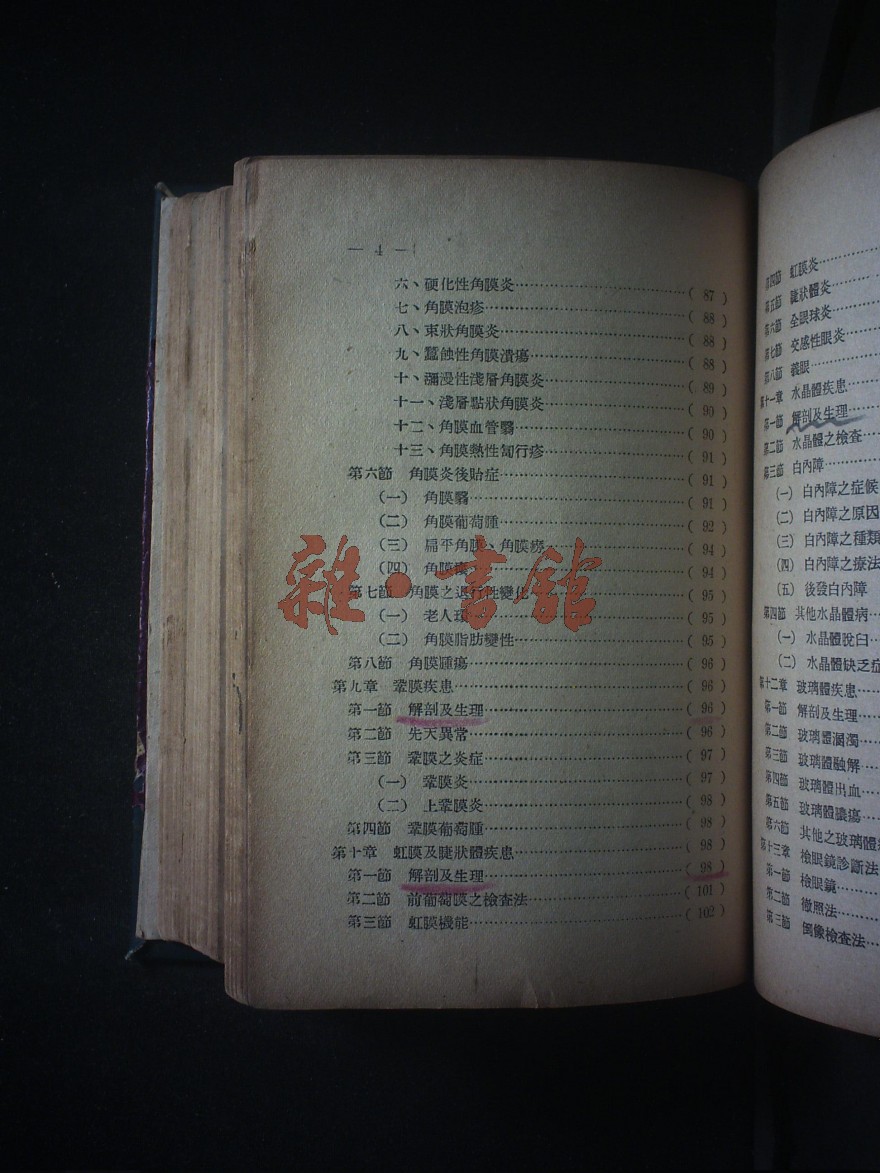 — 4 —
六、硬化性角膜炎……………………( 87 )
七、角膜泡疹……………………( 88 )
八、束狀角膜炎……………………( 88 )
九、蠶蝕性角膜潰瘍……………………( 88 )
十、瀰漫性淺層角膜炎……………………( 89 )
十一、淺層點狀角膜炎……………………( 90 )
十二、角膜血管翳……………………( 90 )
十三、角膜熱性匐行疹……………………( 91 )
第六節 角膜炎後貽症……………………( 91 )
(一) 角膜翳……………………( 91 )
(二) 角膜葡萄腫……………………( 92 )
(三) 扁平角膜、角膜癆……………………( 94 )
(四) 角膜……………………( 94 )
第七節 角膜之退行性變化……………………( 95 )
(一) 老人環……………………( 95 )
(二) 角膜脂肪變性……………………( 95 )
第八節 角膜腫瘍……………………( 96 )
第九章 鞏膜疾患……………………( 96 )
第一節 解剖及生理……………………( 96 )
第二節 先天異常……………………( 96 )
第三節 鞏膜之炎症……………………( 97 )
(一) 鞏膜炎……………………( 97 )
(二) 上鞏膜炎……………………( 98 )
第四節 鞏膜葡萄腫……………………( 98 )
第十章 虹膜及睫狀體疾患……………………( 98 )
第一節 解剖及生理……………………( 98 )
第二節 前葡萄膜之檢查法……………………( 101 )
第三節 虹膜機能……………………( 102 )
雜·書館
第四節 虹膜炎……………
第五節 睫狀體炎……………
第六節 全眼球炎……………
第七節 交感性眼炎……………
第八節 義眼……………
第十一章 水晶體疾患……………
第一節 解剖及生理……………
第二節 水晶體之檢查……………
第三節 白內障……………
(一) 白內障之症候
(二) 白內障之原因
(三) 白內障之種類
(四) 白內障之療法
(五) 後發白內障
第四節 其他水晶體病……
(一) 水晶體脫臼……
(二) 水晶體缺乏症
第十二章 玻璃體疾患……
第一節 解剖及生理……
第二節 玻璃體溷濁……
第三節 玻璃體融解……
第四節 玻璃體出血……
第五節 玻璃體膿瘍……
第六節 其他之玻璃體
第十三章 檢眼鏡診斷法
第一節 檢眼鏡……
第二節 徹照法……
第三節 倒像檢查法……